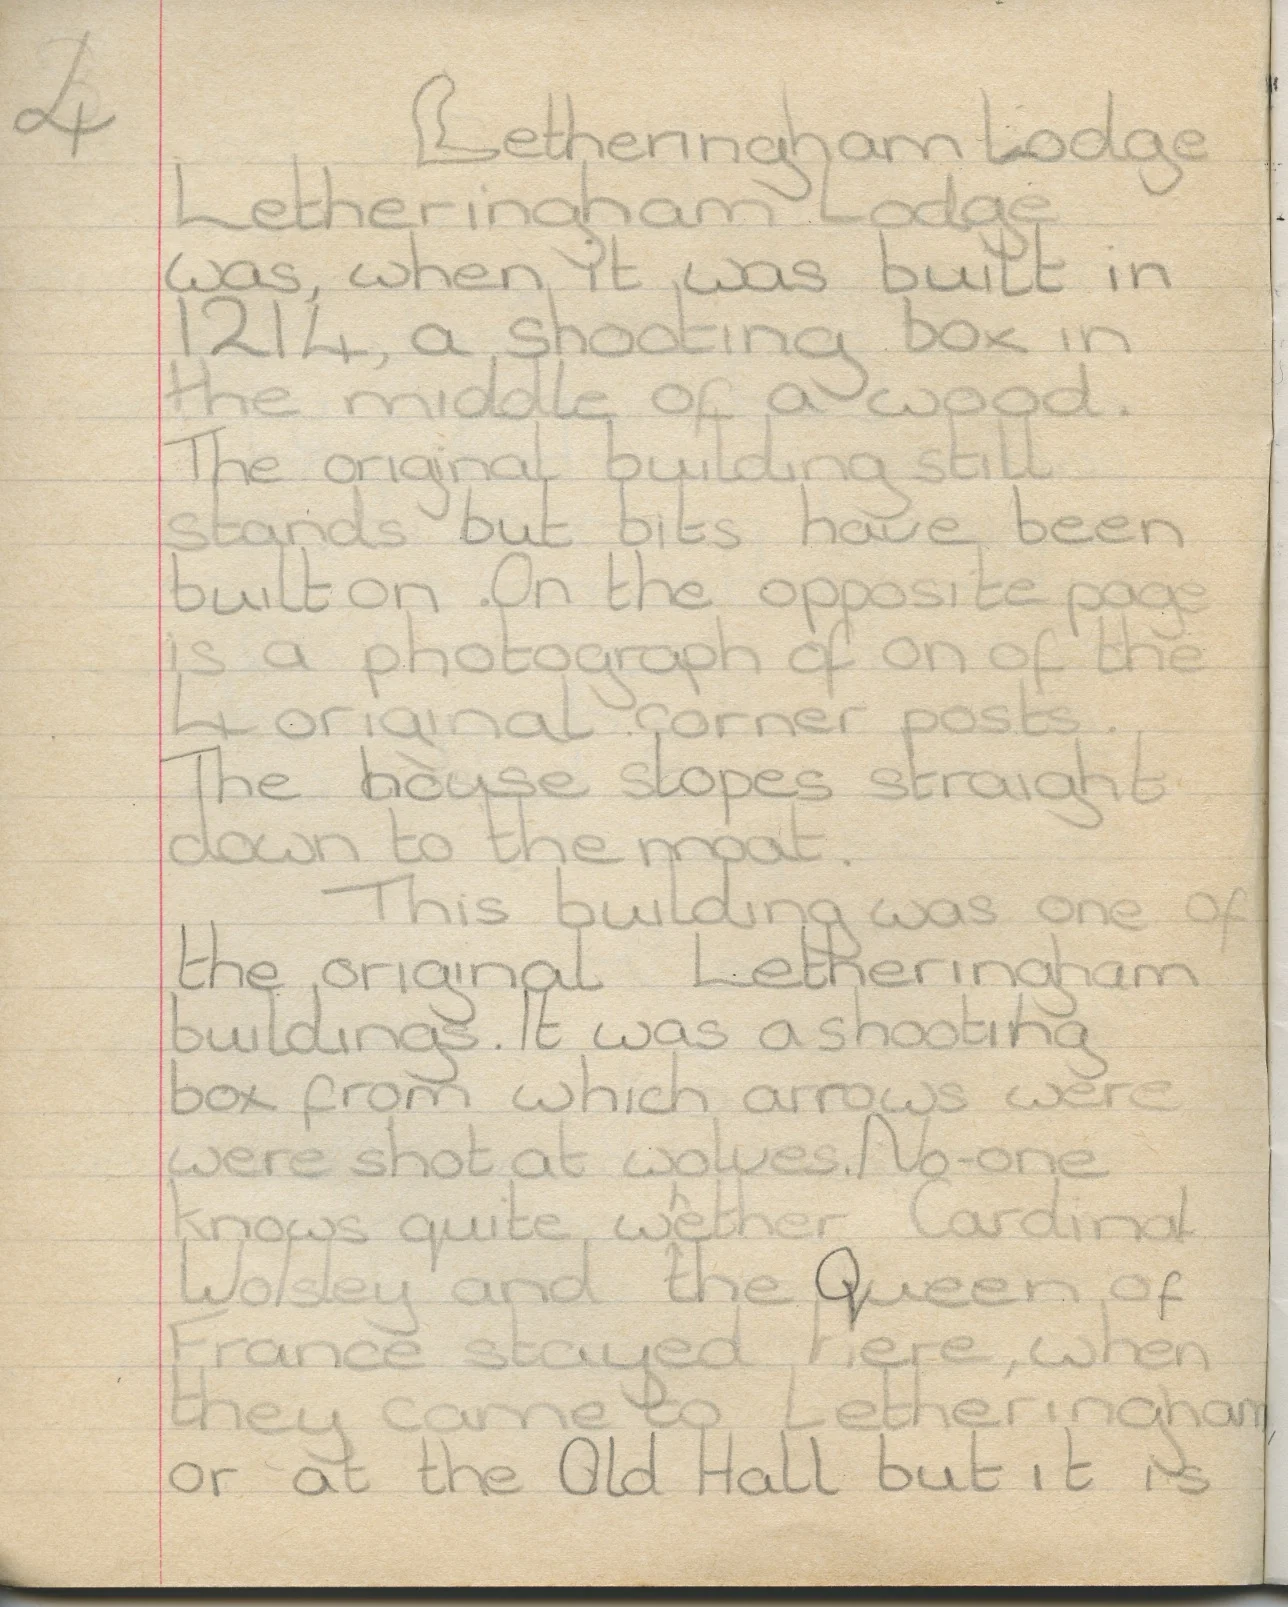 4
Letheringham Lodge
Letheringham Lodge
was, when it was built in
1214, a shooting box in
the middle of a wood.
The original building still
stands but bits have been
built on. On the opposite page
is a photograph of on of the
4 original corner posts.
The house slopes straight
down to the moat.
This building was one of
the original Letheringham
buildings. It was a shooting
box from which arrows were
were shot at wolves. No-one
knows quite whether Cardinal
Wolsley and the Queen of
France stayed here, when
they came to Letheringham,
or at the Old Hall but it is